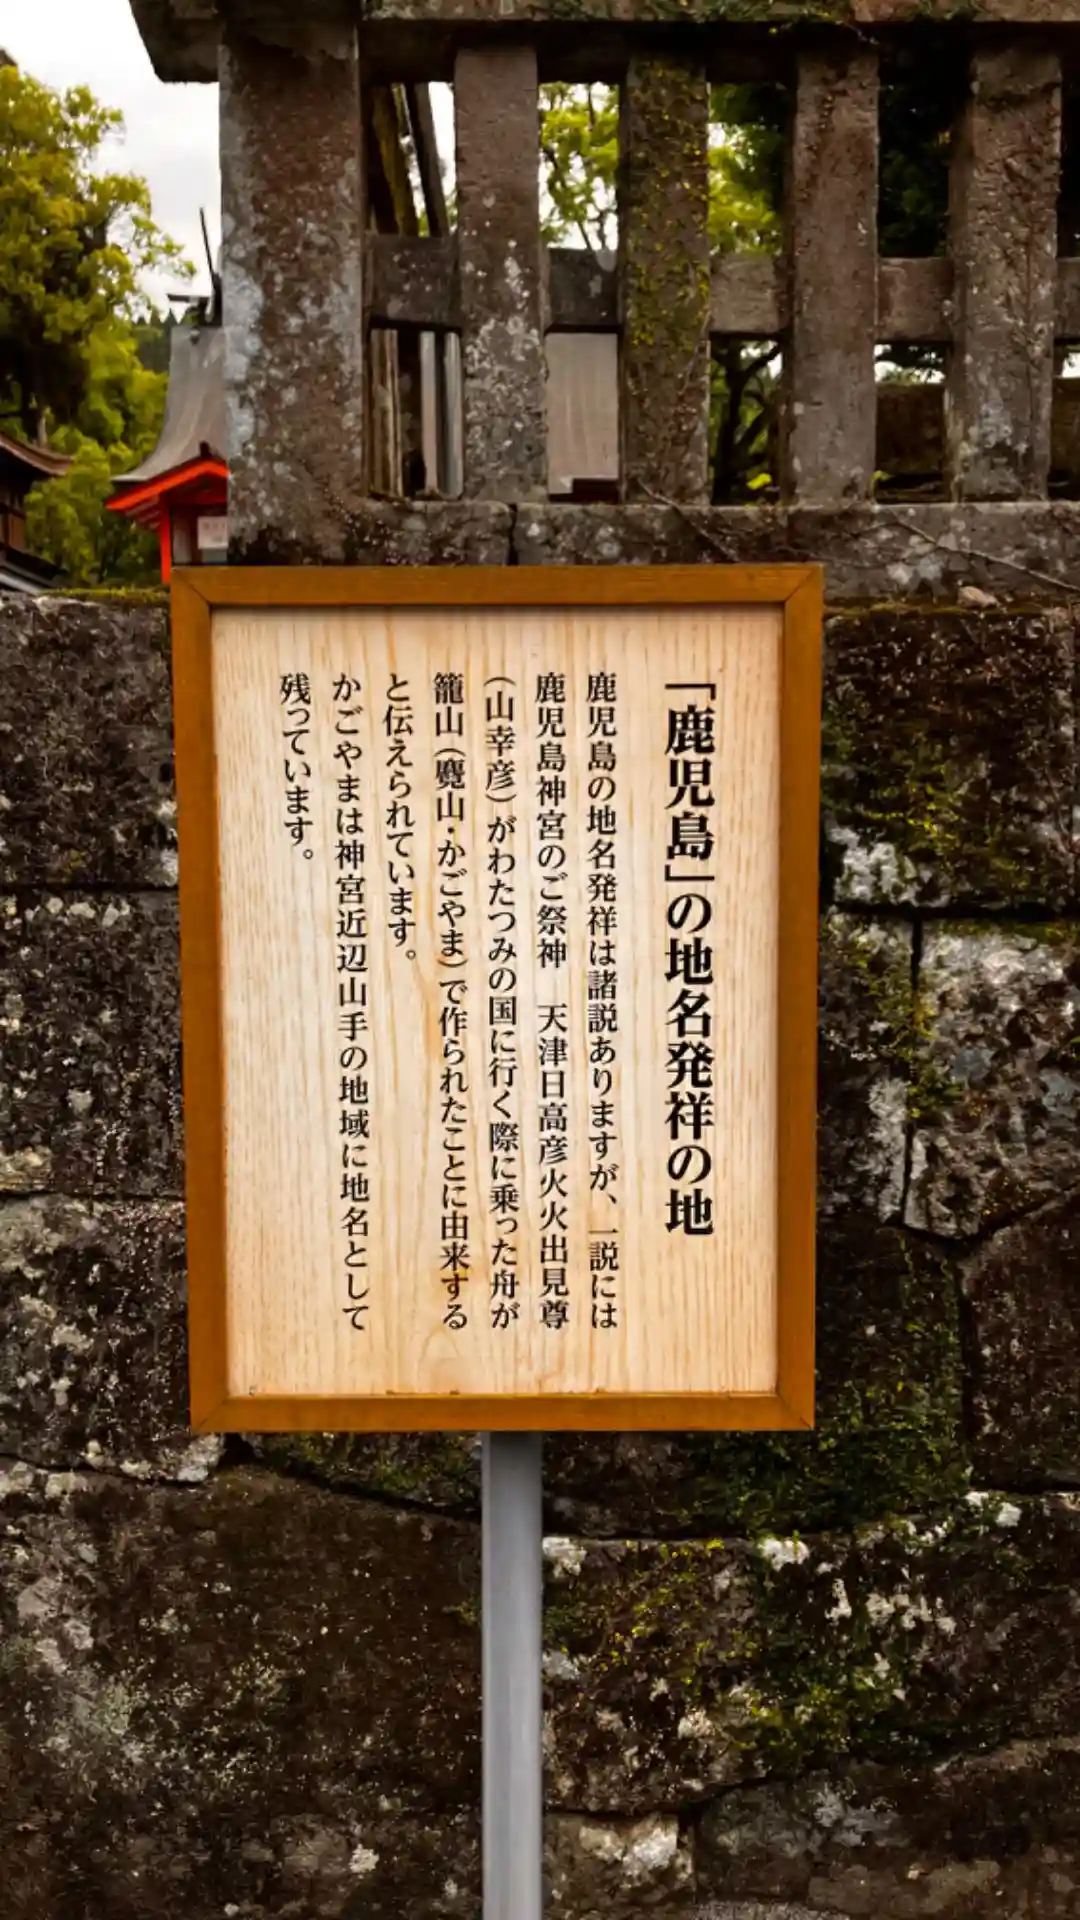 「鹿児島」の地名発祥の地
鹿児島の地名発祥は諸説ありますが、一説には
鹿児島神宮のご祭神　天津日高彦火火出見尊
(山幸彦)がわたつみの国に行く際に乗った舟が
籠山(麑山・かごやま)で作られたことに由来する
と伝えられています。
かごやまは神宮近辺山手の地域に地名として
残っています。